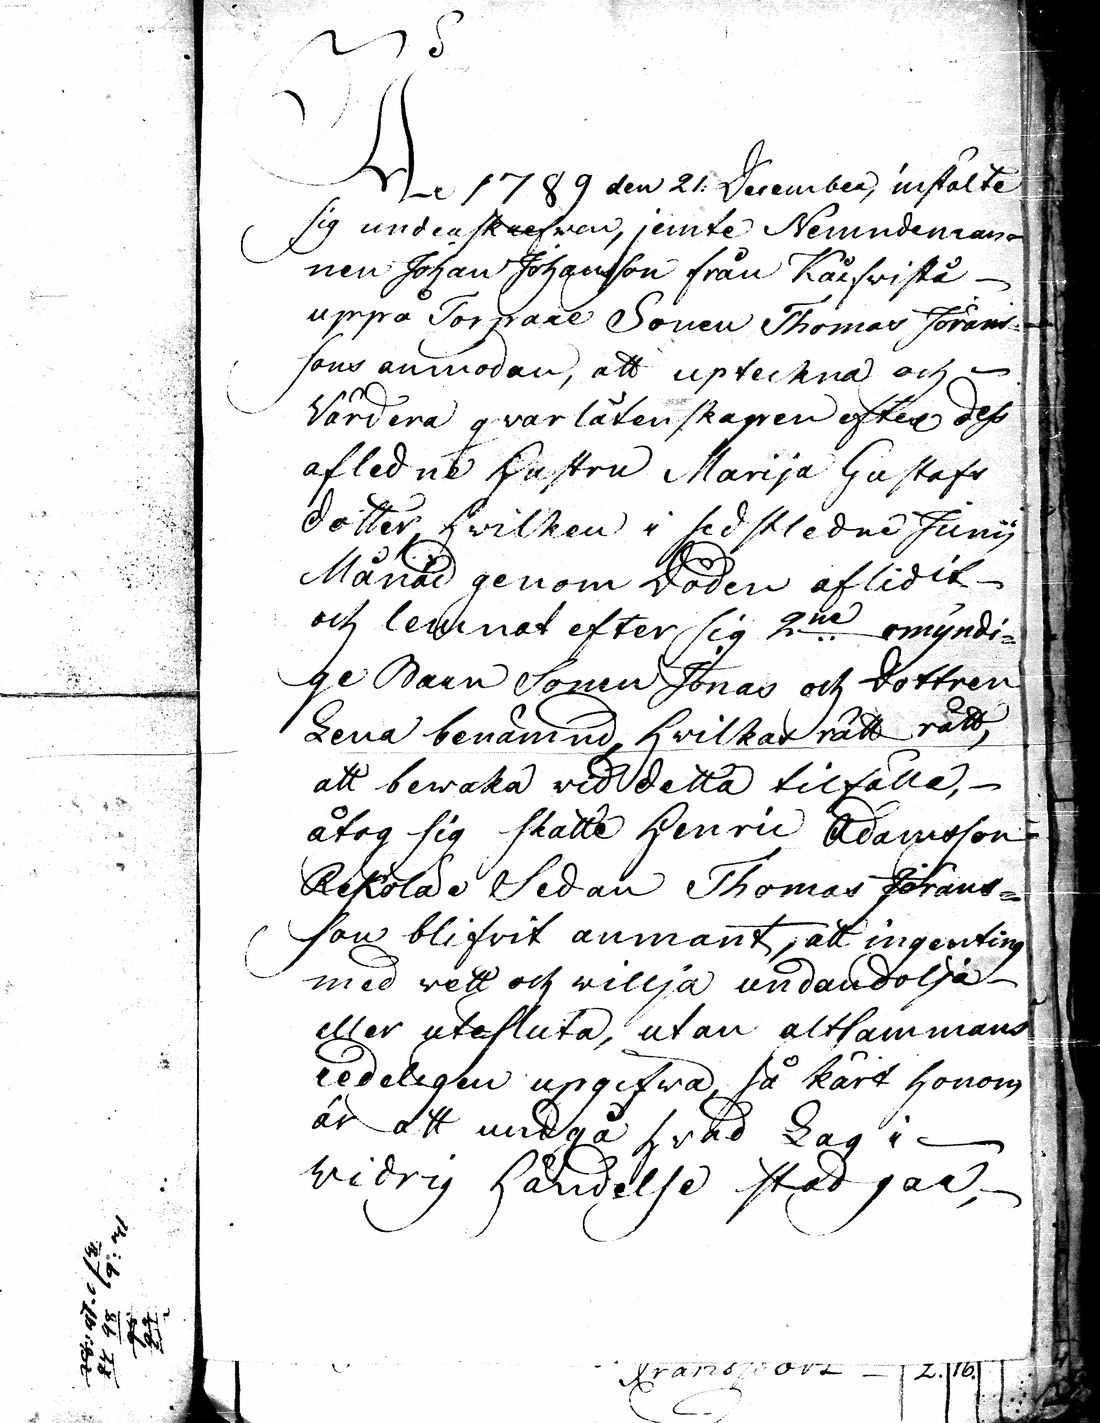 Åhr 1789 den 21. December, instälte
sig underskrefwen, jemte Nemndeman-
nen Johan Johansson från
uppå Torpare Sonen Thomas Jörans-
sons anmodan, att upteckna och
värdera qvarlåtenskapen efter dess
afledne Hustru Marija Gustafs
dotter, hvilken i sedstledne Junij
Månad genom Döden aflidit
och lemnat efter sig 2ne omyndi=
ge Barn Sonen Jonas och Dottren
Lena benämnd, hvilkas rätt rätt,
att bewaka vid detta tilfälle,
åtog sig skatte Henric Adamsson
Rekola Sedan Thomas Jörans=
son blifvit anmant, att ingenting
med vett och villja undandölja
eller utesluta, utan altsammans
redeligen upgifwa, så kärt honom
är att undgå hvad Lag i
vidrig Händelse stadgar,
Transport 2. 16.